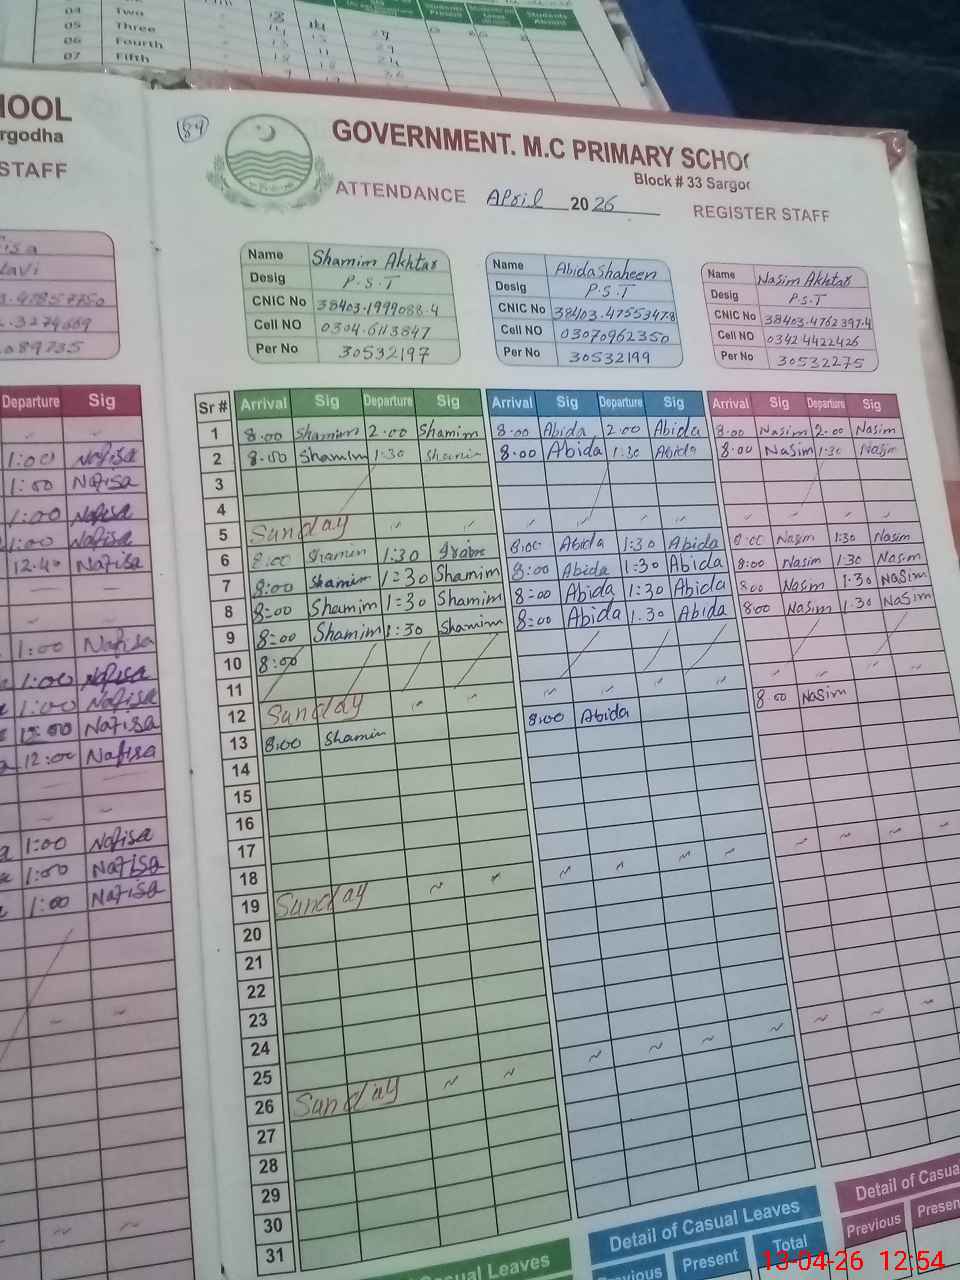 04 Two
05 Three 14 15 29
06 Fourth 13 11 24
07 Fifth
Students Present
Students Absent
HOOL
rgodha
STAFF
Departure Sig
1:00 Nafisa
1:00 Nafisa
1:00 Nafisa
1:00 Nafisa
12.40 Nafisa
1:00 Nafisa
1:00 Nafisa
1:00 Nafisa
12:00 Nafisa
12:00 Nafisa
1:00 Nafisa
1:00 Nafisa
1:00 Nafisa
84
GOVERNMENT. M.C PRIMARY SCHO
Block # 33 Sargo
ATTENDANCE April 2026 REGISTER STAFF
Name Shamim Akhtar
Desig P.S.T
CNIC No 38403.1999088.4
Cell NO 0304.6113847
Per No 30532197
Name Abida Shaheen
Desig P.S.T
CNIC No 38403.4755347.8
Cell NO 03070962350
Per No 30532199
Name Nasim Akhtar
Desig P.S.T
CNIC No 38403.4762397.4
Cell NO 0342.4422426
Per No 30532275
Sr # Arrival Sig Departure Sig Arrival Sig Departure Sig Arrival Sig Departure Sig
1 8.00 Shamim 2.00 Shamim 8.00 Abida 2.00 Abida 8.00 Nasim 2.00 Nasim
2 8.00 Shamim 1:30 Shamim 8.00 Abida 1:30 Abida 8.00 Nasim 1:30 Nasim
3
4
5 Sunday
6 8:00 Shamim 1:30 8:00 Abida 1:30 Abida 8:00 Nasim 1:30 Nasim
7 8:00 Shamim 1:30 Shamim 8:00 Abida 1:30 Abida 8:00 Nasim 1:30 Nasim
8 8:00 Shamim 1:30 Shamim 8:00 Abida 1:30 Abida 8:00 Nasim 1.30 Nasim
9 8:00 Shamim 1:30 Shamim 8:00 Abida 1.30 Abida 8:00 Nasim 1.30 Nasim
10 8:00
11
12 Sunday
13 8:00 Shamim 8:00 Abida 8:00 Nasim
14
15
16
17
18
19 Sunday
20
21
22
23
24
25
26 Sunday
27
28
29
30
31
sual Leaves
Detail of Casual Leaves
Previous Present Total
Detail of Casua
Previous Presen
13-04-26 12:54